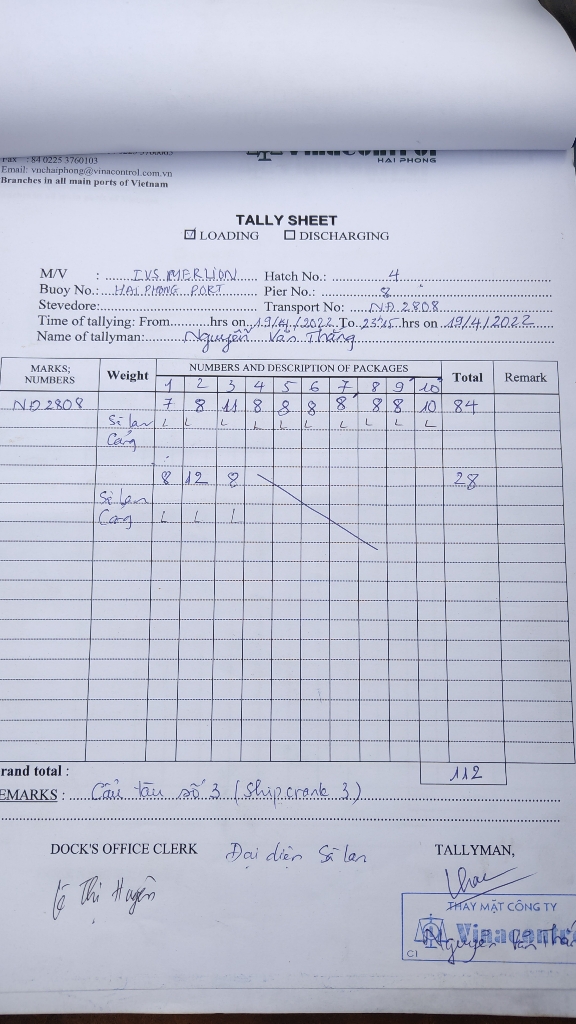 Fax : 84 0225 3760103
Email: vnchaiphong@vinacontrol.com.vn
Branches in all main ports of Vietnam
Vinacontrol
HAI PHONG
TALLY SHEET
☑ LOADING ☐ DISCHARGING
M/V : IVS MERLION Hatch No.: 4
Buoy No.: HAI PHONG PORT Pier No.: 8
Stevedore: Transport No: NĐ 2808
Time of tallying: From hrs on 19/4/2022 To 23h15 hrs on 19/4/2022
Name of tallyman: Nguyễn Văn Thắng
MARKS; NUMBERS Weight NUMBERS AND DESCRIPTION OF PACKAGES Total Remark
1 2 3 4 5 6 7 8 9 10
NĐ 2808 7 8 11 8 8 8 8 8 8 10 84
Sà lan L L L L L L L L L L
Cảng
8 12 8 28
Sà lan
Cảng L L L
rand total : 112
EMARKS : Cẩu tàu số 3 (Ship crank 3)
DOCK'S OFFICE CLERK Đại diện Sà lan TALLYMAN,
Lê Thị Huyên
THAY MẶT CÔNG TY
Vinacontro
Nguyễn Văn Thắ
C1